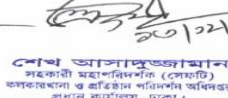 শেখ আসাদুজ্জামান
সহকারী মহাপরিদর্শক (সেফটি)
কলকারখানা ও প্রতিষ্ঠান পরিদর্শন অধিদপ্তর
প্রধান কার্যালয়, ঢাকা।